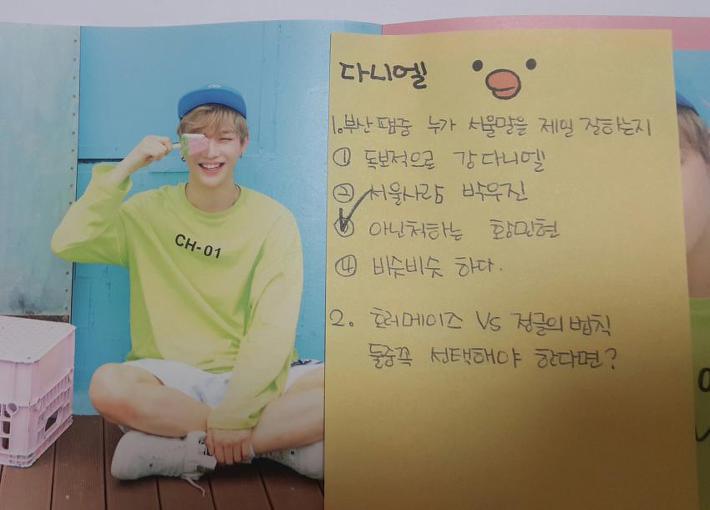 CH-01
다니엘
1. 부산팸중 누가 서울말을 제일 잘하는지
① 독보적으로 강다니엘
② 서울사람 박우진
③ 아닌척하는 황민현
④ 비슷비슷 하다.
2. 호러메이즈 VS 정글의 법칙
둘중꼭 선택해야 한다면?